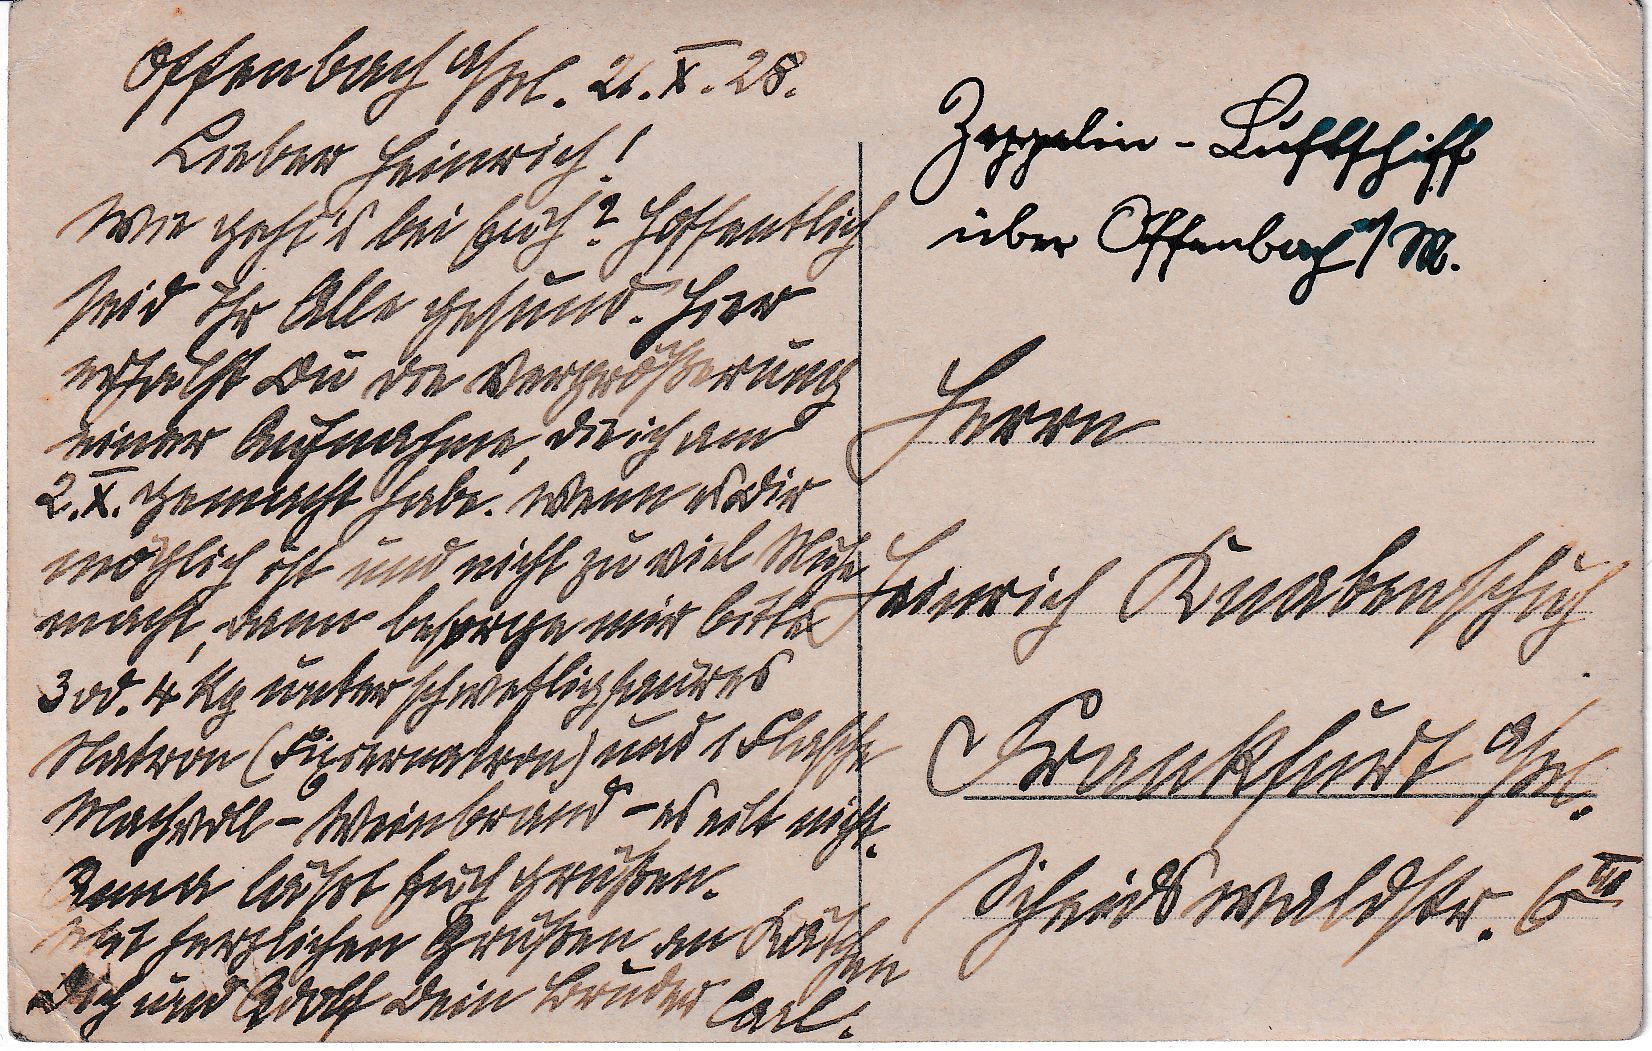 Offenbach a/M. 21. X. 28.
Lieber Heinrich!
Wie geht's bei Euch? Hoffentlich
seid Ihr Alle gesund. Hier
erhälst Du die Vergrößerung
einer Aufnahme, die ich am
2. X. gemacht habe. Wenn es Dir
möglich ist und nicht zu viel Mühe
macht, dann besorge mir bitte
3 od. 4 Kg unterschwefligsaures
Natron (Fixiernatron) und 1 Flasche
- Weinbrand - es eilt nicht.
läßt Euch grüßen.
Mit herzlichen Grüßen an Kätchen
Dich und Adolf Dein Bruder Carl.
Zeppelin - Luftschiff
über Offenbach a/M.
Herrn
Heinrich Knabenschuh
Frankfurt a/M.
Scheidswaldstr. 6 III